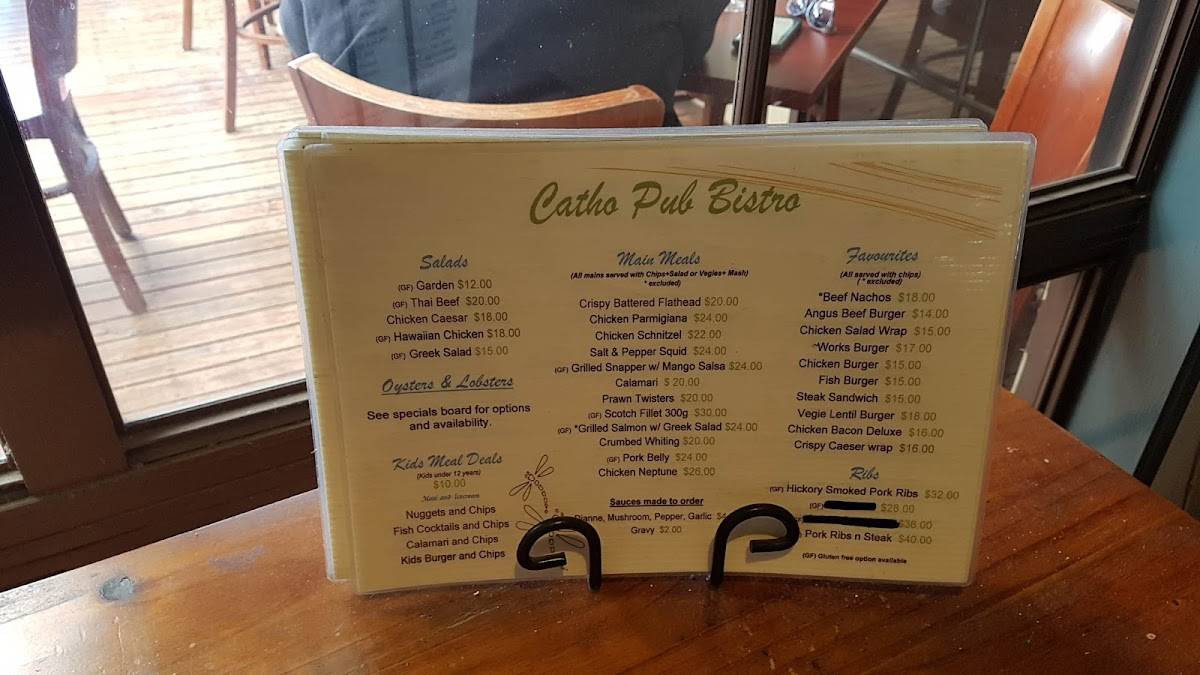 Catho Pub Bistro
Salads
(GF) Garden $12.00
(GF) Thai Beef $20.00
Chicken Caesar $18.00
(GF) Hawaiian Chicken $18.00
(GF) Greek Salad $15.00
Oysters & Lobsters
See specials board for options
and availability.
Kids Meal Deals
(Kids under 12 years)
$10.00
Meal and Icecream
Nuggets and Chips
Fish Cocktails and Chips
Calamari and Chips
Kids Burger and Chips
Main Meals
(All mains served with Chips+Salad or Vegies+ Mash)
* excluded)
Crispy Battered Flathead $20.00
Chicken Parmigiana $24.00
Chicken Schnitzel $22.00
Salt & Pepper Squid $24.00
(GF) Grilled Snapper w/ Mango Salsa $24.00
Calamari $ 20.00
Prawn Twisters $20.00
(GF) Scotch Fillet 300g $30.00
(GF) *Grilled Salmon w/ Greek Salad $24.00
Crumbed Whiting $20.00
(GF) Pork Belly $24.00
Chicken Neptune $26.00
Sauces made to order
Dianne, Mushroom, Pepper, Garlic
Gravy $2.00
Favourites
(All served with chips)
( * excluded)
*Beef Nachos $18.00
Angus Beef Burger $14.00
Chicken Salad Wrap $15.00
Works Burger $17.00
Chicken Burger $15.00
Fish Burger $15.00
Steak Sandwich $15.00
Vegie Lentil Burger $18.00
Chicken Bacon Deluxe $16.00
Crispy Caeser wrap $16.00
Ribs
(GF) Hickory Smoked Pork Ribs $32.00
(GF) $28.00
$36.00
Pork Ribs n Steak $40.00
(GF) Gluten free option available